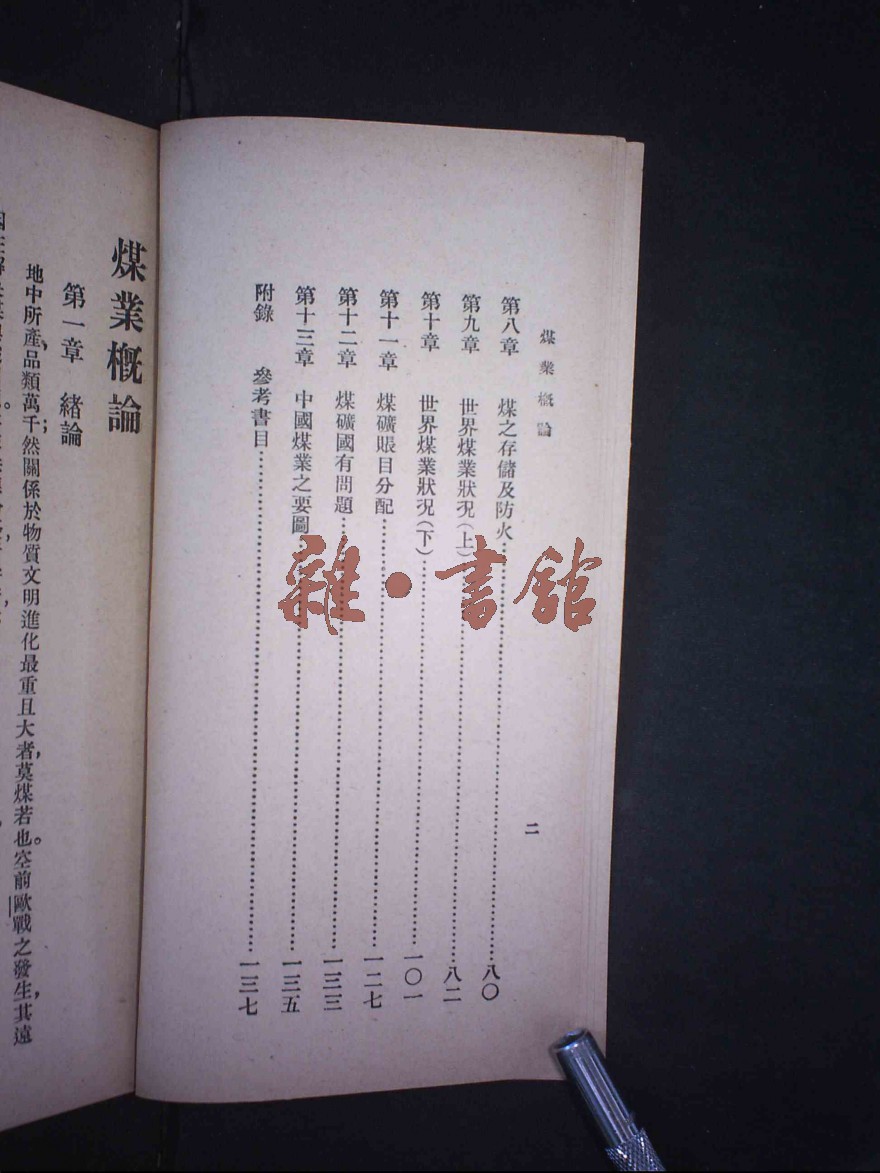 煤業概論
二
第八章 煤之存儲及防火……八〇
第九章 世界煤業狀況(上)……八二
第十章 世界煤業狀況(下)……一〇一
第十一章 煤礦賬目分配……一二七
第十二章 煤礦國有問題……一三三
第十三章 中國煤業之要圖……一三五
附錄 參考書目……一三七
煤業概論
第一章 緒論
地中所產品類萬千;然關係於物質文明進化最重且大者,莫煤若也。空前歐戰之發生,其遠
雜·書館